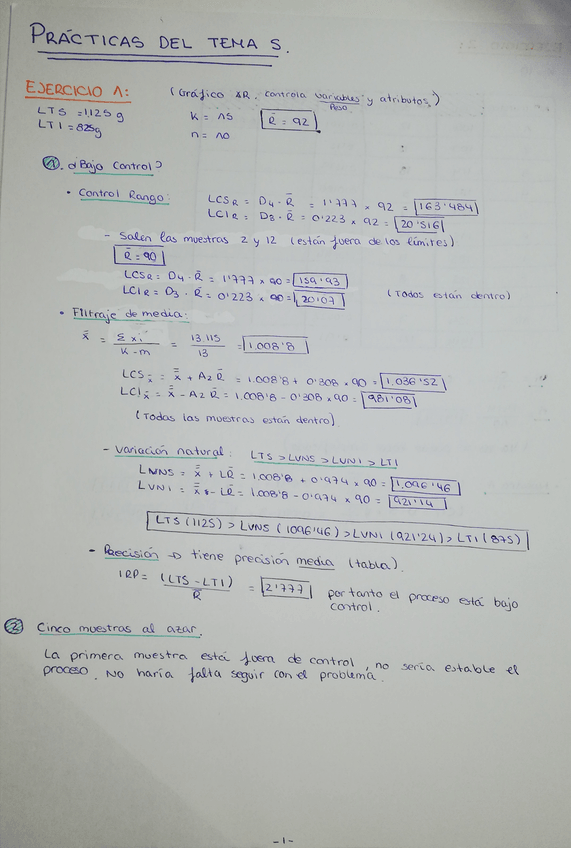 PRÁCTICAS DEL TEMA 5.
EJERCICIO 1:
(Gráfico XR. controla variables y atributos)
Peso
LTS = 1125 g
K = 15
R̄ = 92
LTI = 825g
n = 10
1. ¿Bajo Control?
• Control Rango:
LCS_R = D4 · R̄ = 1'777 x 92 = 163'484
LCI_R = D3 · R̄ = 0'223 x 92 = 20'516
- Salen las muestras 2 y 12 (están fuera de los límites)
R̄ = 90
LCS_R = D4 · R̄ = 1'777 x 90 = 159'93
LCI_R = D3 · R̄ = 0'223 x 90 = 20'07 (Todos están dentro)
• Filtraje de media:
x̿ = Σxi / K-m = 13115 / 13 = 1.008'8
LCS_x̄ = x̿ + A2 R̄ = 1.008'8 + 0'308 x 90 = 1.036'52
LCI_x̄ = x̿ - A2 R̄ = 1.008'8 - 0'308 x 90 = 981'08
(Todas las muestras están dentro)
- Variación natural: LTS > LVNS > LVNI > LTI
LVNS = x̿ + LR̄ = 1.008'8 + 0'974 x 90 = 1.096'46
LVNI = x̿ - LR̄ = 1.008'8 - 0'974 x 90 = 921'14
LTS (1125) > LVNS (1096'46) > LVNI (921'24) > LTI (875)
- Precisión → tiene precisión media (tabla).
IRP = (LTS - LTI) / R̄ = 2'777 por tanto el proceso está bajo
control.
2 Cinco muestras al azar.
La primera muestra está fuera de control, no sería estable el
proceso. No haría falta seguir con el problema.
-1-